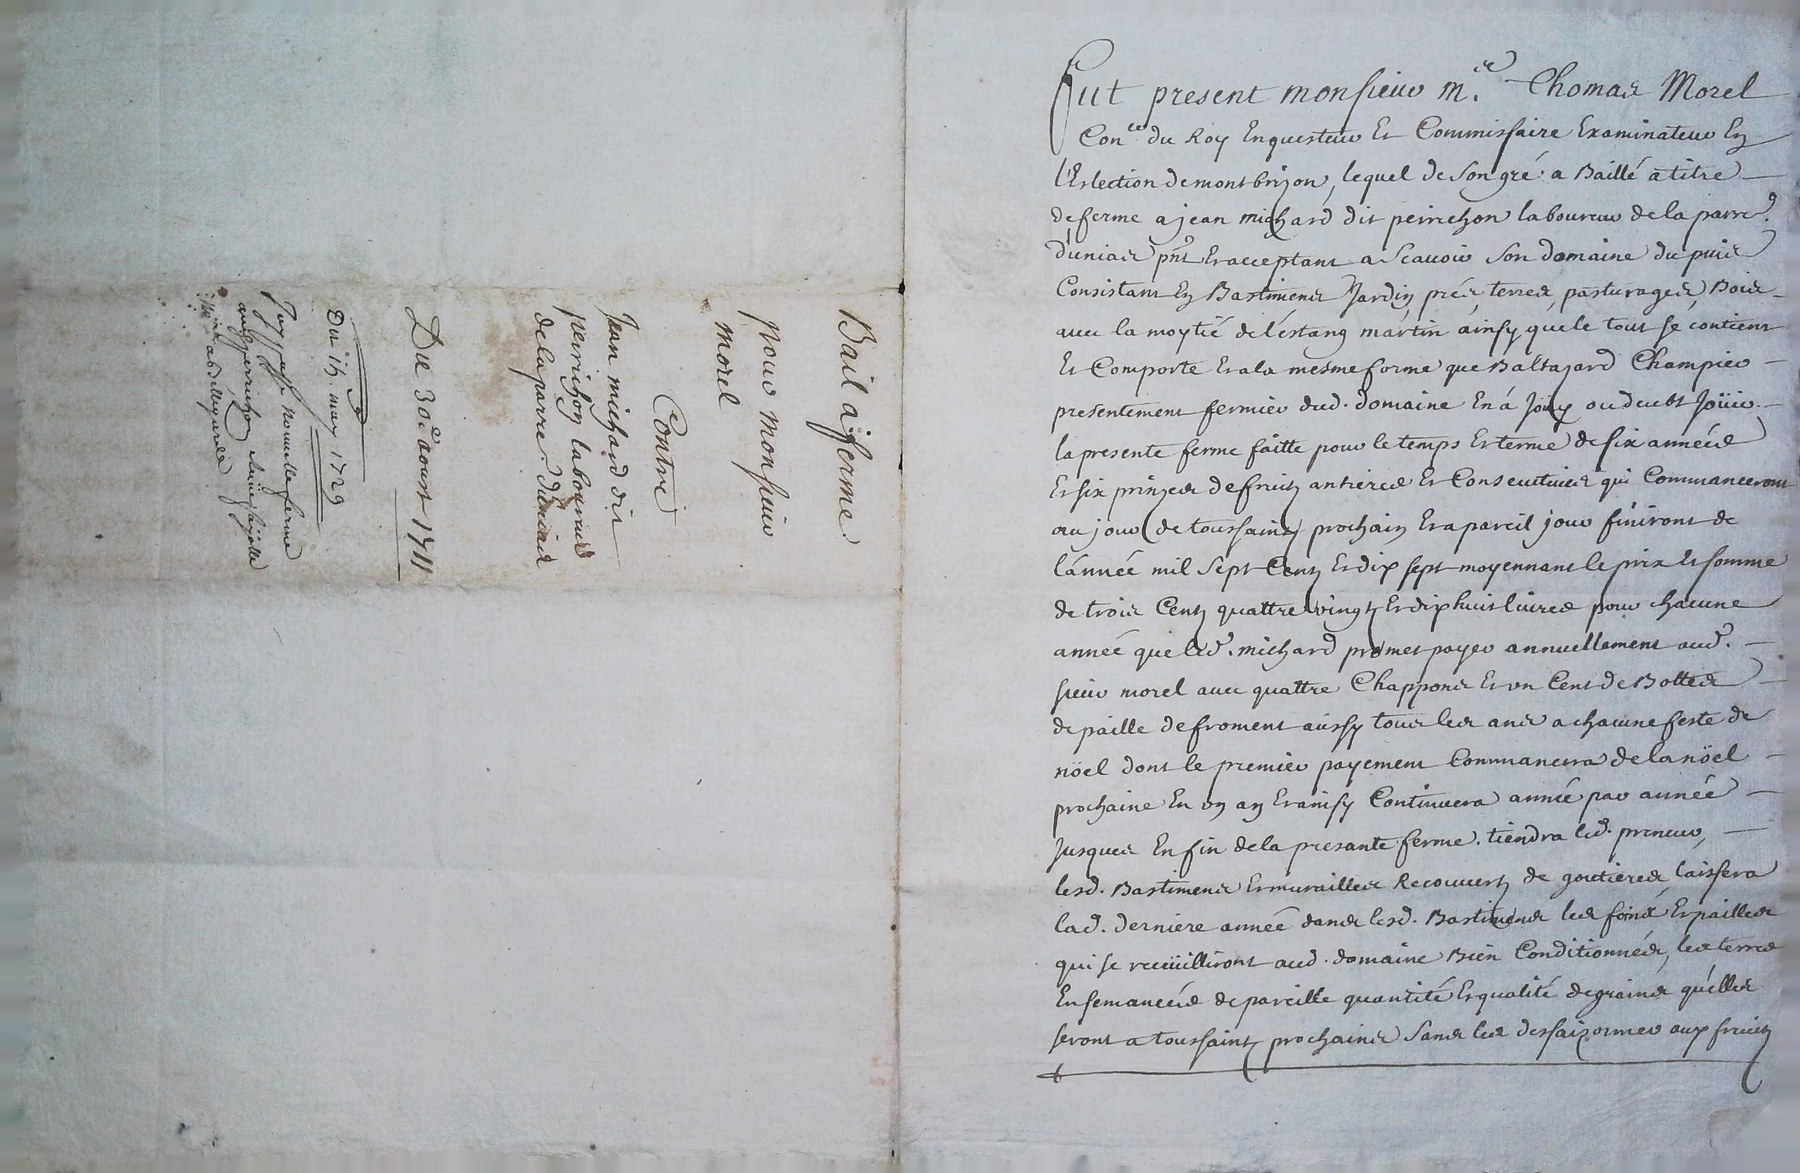 Bail a ferme.
pour monsieur
morel
Contre
Jean michard dit
peirichon laboureur
de la parre. d'unias
Du 30e. aoust 1711
Du 14. may 1729
J'ay passé nouvelle ferme
Fut present monsieur me. Thomas Morel
Coner. du Roy Enquesteur Et Commissaire Examinateur En
l'Eslection de montbrizon, lequel de son gré a Baillé a titre
de ferme a jean michard dit peirichon laboureur de la parre.
d'unias pnt Et acceptant a Scauoir Son domaine du puis
Consistant En Bastiments Jardin, prés, terres, pasturages, Bois
auec la moytié de l'éstang martin ainsy que le tout se contient
Et Comporte Et a la mesme forme que Baltazard Champier
presentement fermier dud. domaine En a Jouy ou deubt Joüir.
la presente ferme faitte pour le temps Et terme de six années
Et six prinzes de fruits antieres Et Consecutiues qui Commanceront
au jour de toussaints prochain Et a pareil jour finiront de
l'année mil sept Cents Et dix sept moyennant le prix Et somme
de trois Cents quattre vingts Et dix huit liures pour chacune
année que led. michard promet payer annuellement aud.
sieur morel auec quattre Chappons Et vn Cent de Bottes
de paille de froment aussy tous les ans a chacune feste de
nöel dont le premier payement Commancera de la nöel
prochaine En vn an Et ainsy Continuera année par année
Jusques En fin de la presante ferme. tiendra led. preneur,
lesd. Bastiments Et murailles Recouuerts de goutieres, laissera
lad. derniere année dans lesd. Bastiments les foins Et pailles
qui se recüilliront aud. domaine Bien Conditionnés, les terres
Ensemancées de pareille quantité Et qualité de grains qu'elles
seront a toussaints prochains Sans les dessaizonner aux fruits